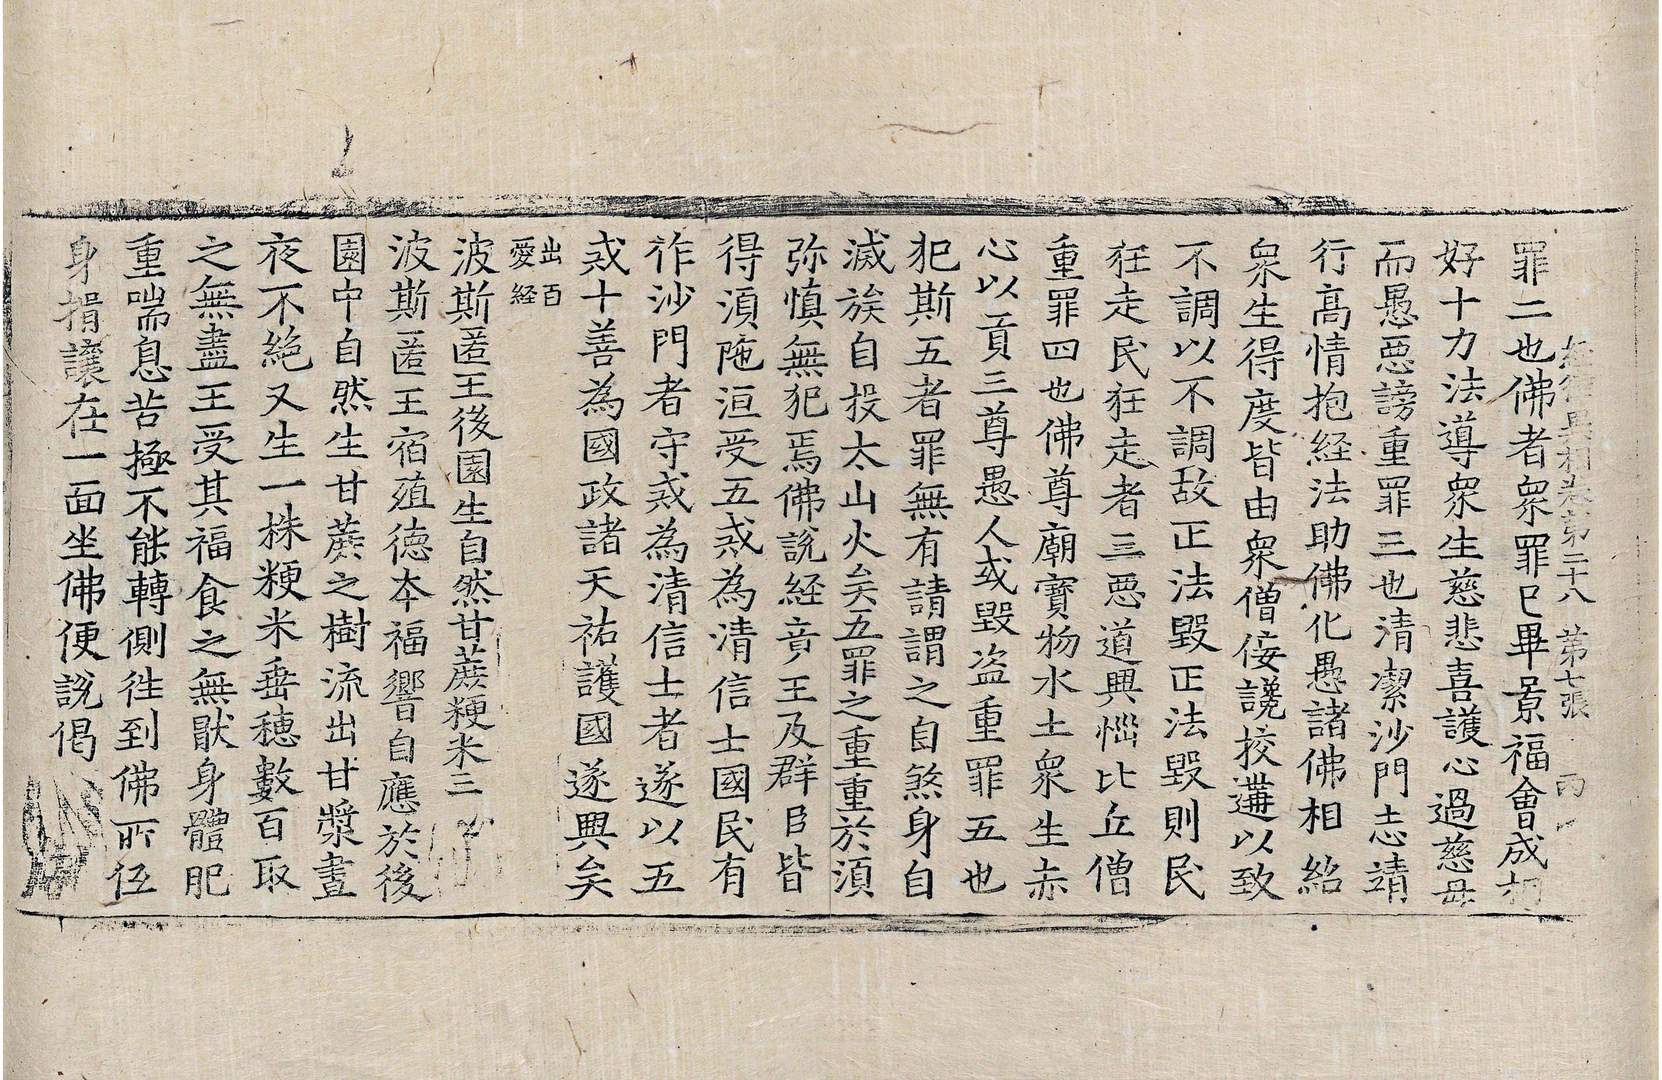 經律異相卷第二十八 第七張 丙
罪二也佛者衆罪已畢景福會成相
好十力法導衆生慈悲喜護心過慈母
而愚惡謗重罪三也清潔沙門志靖
行高情抱経法助佛化愚諸佛相紹
衆生得度皆由衆僧侫讒挍遘以致
不調以不調故正法毀正法毀則民
狂走民狂走者三惡道興惱比丘僧
重罪四也佛尊廟寳物水土衆生赤
心以貢三尊愚人或毀盗重罪五也
犯斯五者罪無有請謂之自煞身自
滅族自投太山火矣五罪之重重於湏
弥慎無犯焉佛說経竟王及群臣皆
得湏陁洹受五戒為清信士國民有
作沙門者守戒為清信士者遂以五
戒十善為國政諸天祐護國遂興矣
出百
愛経
波斯匿王後園生自然甘蔗粳米三
波斯匿王宿殖徳本福響自應於後
園中自然生甘蔗之樹流出甘漿晝
夜不絶又生一株粳米垂穗數百取
之無盡王受其福食之無猒身體肥
重喘息苦極不能轉側往到佛所伍
身揖讓在一面坐佛便說偈